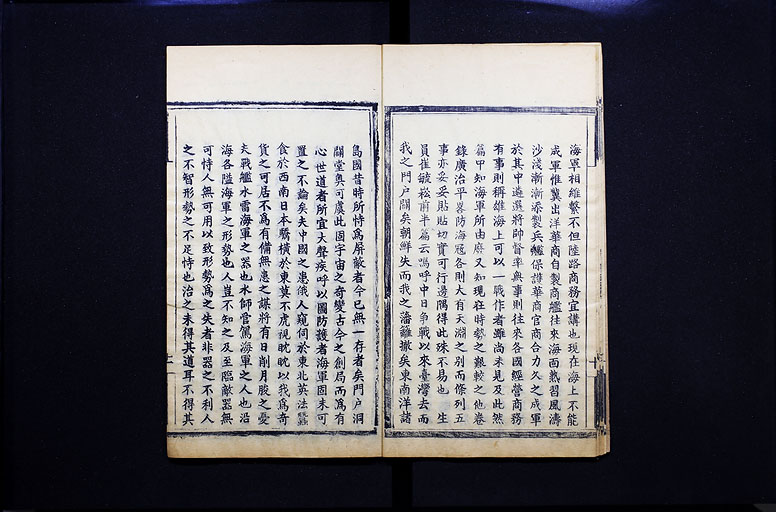 海軍相維繫不但陸路商務宜講也現在海上不能
成軍惟冀出洋華商自製商艦往來海面熟習風濤
沙淺漸漸添製兵艦保護華商官商合力久之成軍
於其中遴選將帥督率與事則往來各國經營商務
有事則稱雄海上可以一戰作者雖尚未見及此然
篇中知海軍所由麻又知現在時勢之艱較之他卷
錄廣治平畧防海寇各則大有天淵之別而條列五
事亦妥妥貼貼切實可行邊隅得此殊不易也 生
員崔毓松前半篇云嗚呼中日爭戰以來臺灣去而
我之門户闢矣朝鮮失而我之藩籬撤矣東南洋諸
島國昔時所恃爲屏蔽者今已無一存者矣門户洞
闢堂奥可虞此固宇宙之奇變古今之創局而爲有
心世道者所宜大聲疾呼以國防護者海軍固未可
置之不論矣夫中國之患俄人窺伺於東北英法蠶
食於西南日本驕横於東莫不虎視眈眈以我爲奇
貨之可居不爲有備無患之謀將有日削月朘之憂
夫戰艦水雷海軍之器也水師管駕海軍之人也沿
海各隘海軍之形勢也人豈不知之及至臨敵器無
可恃人無可用以致形勢爲之失者非器之不利人
之不智形勢之不足恃也治之未得其道耳不得其